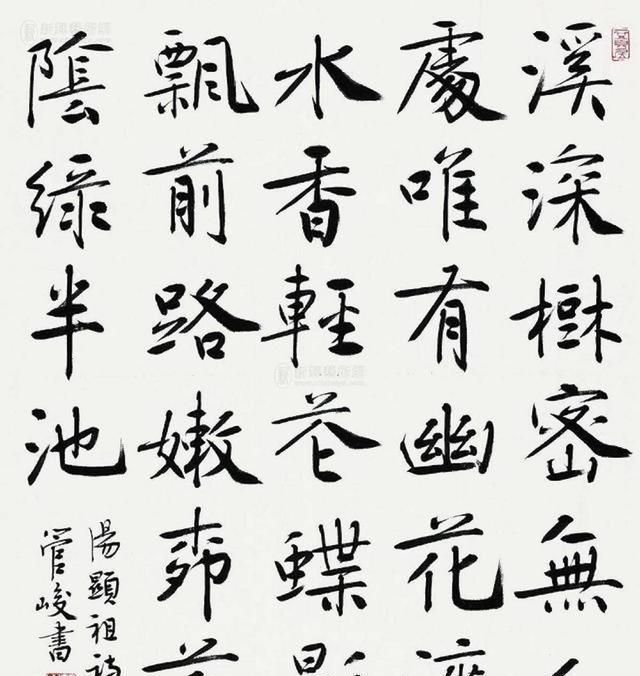 溪深樹密無
處唯有幽花渡
水香輕花蝶影
飄前路嫩
陰綠半池
湯顯祖詩
管峻書